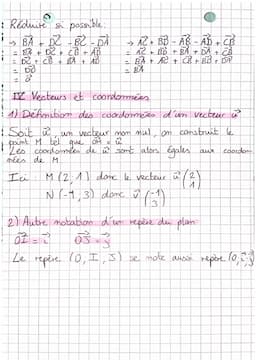 Réduire si possible.
→ BA + DC - BC - DA
= BA + DC + CB + AD
= DC + CB + BA + AD
= DD
= 0
→ AC + BD - AB - AD + CB
= AC + BD + BA + DA + CB
= BA + AC + CB + BD + DA
= BA
IV Vecteurs et coordonnées
1) Définition des coordonnées d'un vecteur u
Soit u, un vecteur non nul, on construit le
point M tel que OM = u
Les coordonnées de u sont alors égales aux coordon-
nées de M
Ici M (2, 1) donc le vecteur u (2 1)
N (-1, 3) donc v (-1 3)
2) Autre notation d'un repère du plan
OI = i OJ = j
Le repère (O, I, J) se note aussi repère (O, i, j)